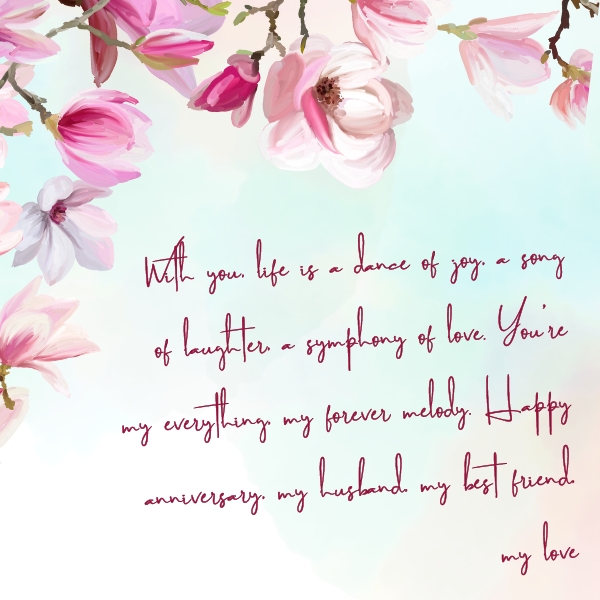 With you, life is a dance of joy, a song
of laughter, a symphony of love. You're
my everything, my forever melody. Happy
anniversary, my husband, my best friend,
my love